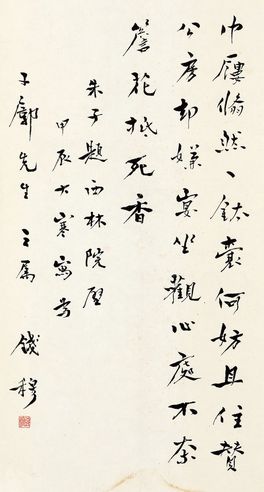 巾屨翛然一鉢囊何妨且住贊
公房却嫌宴坐觀心處不奈
簷花抵死香
朱子題西林院壁
甲辰大寒寫為
子鄺先生之屬 錢穆